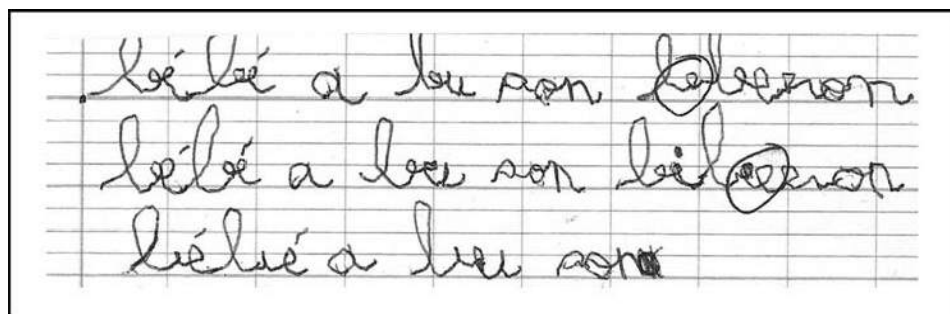 bébé a bu son beberon
bébé a bu son bibeeron
bébé a bu son